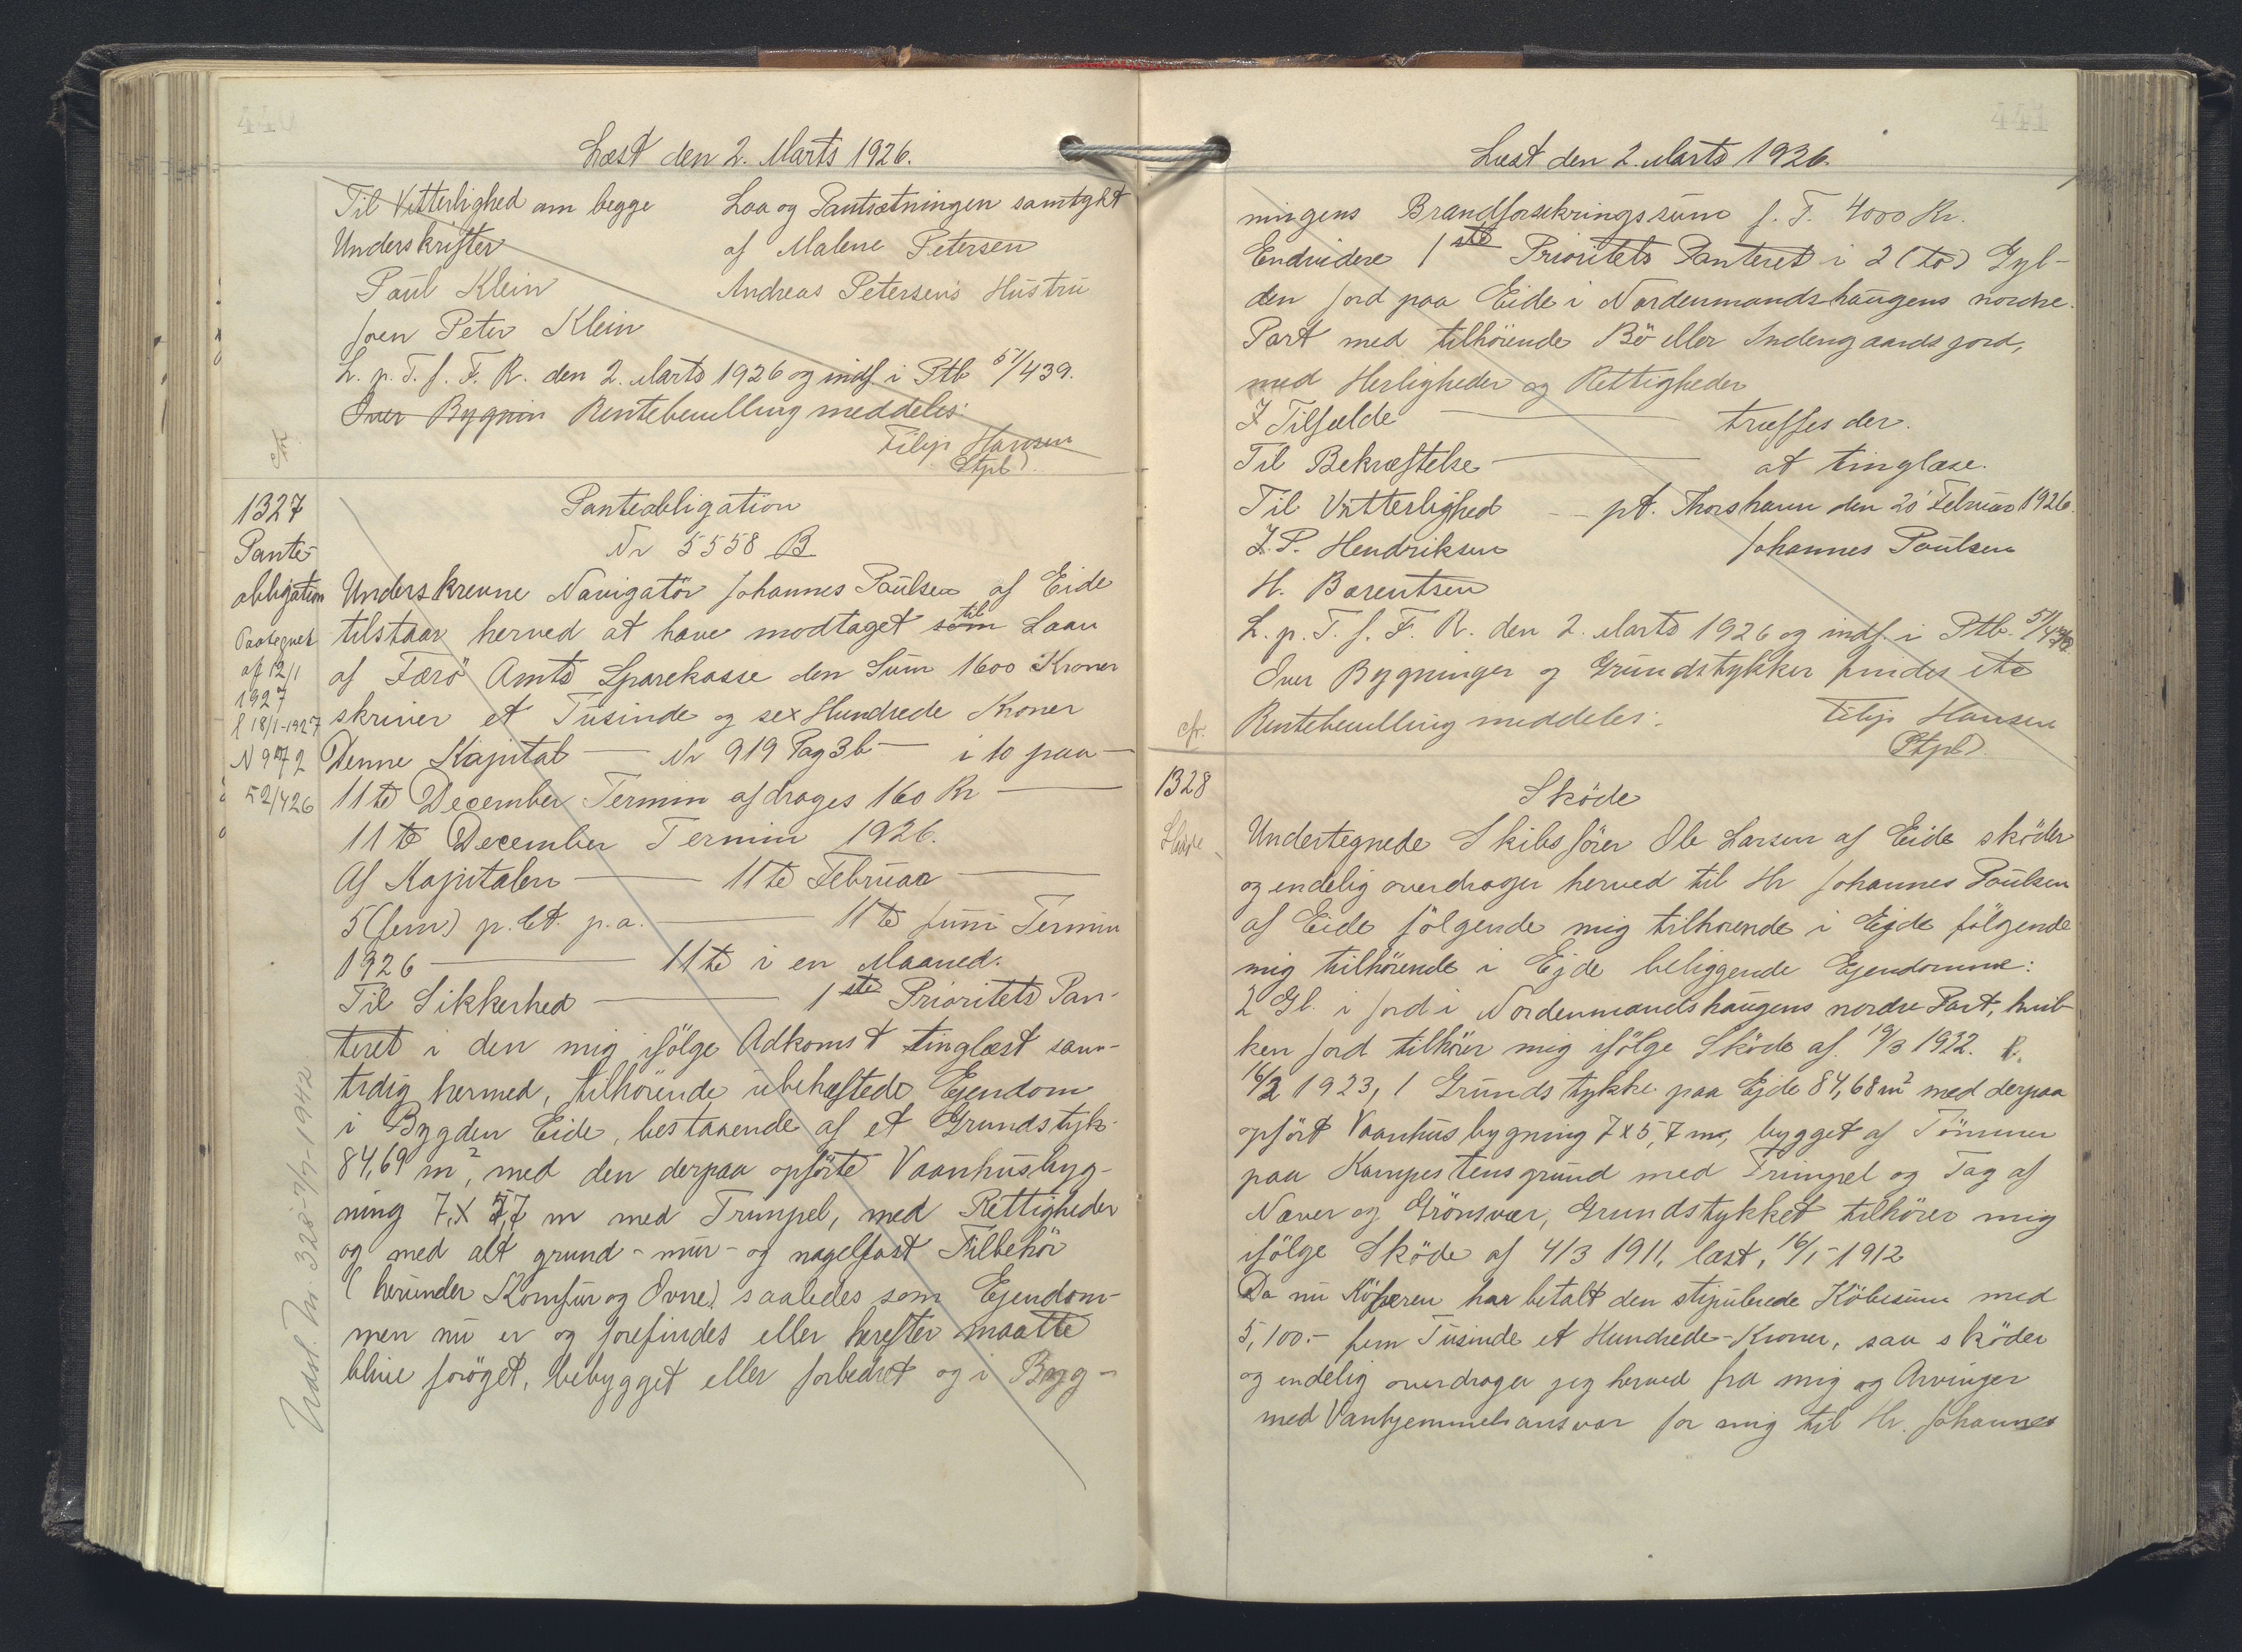 440
Læst den 2. Marts 1926.
Til Vitterlighed om begge Laa og Pantsætningen samtykt
Underskrifter af Malene Petersen
Paul Klein Andreas Petersens Hustru
Joen Peter Klein
L. p. T. f. F. R. den 2. Marts 1926 og indf. i Ptb 51/439.
Over Bygnin Rentebevilling meddeles:
Filip Hansen
Stpb.
1327
Pante-
obligation
Paategnet
af 12/1
1927
l 18/1-1927
N 972
52/426
Panteobligation
Nr 5558 B
Underskrevne Navigatör Johannes Poulsen af Eide
tilstaar herved at have modtaget som til Laan
af Færö Amts Sparekasse den Sum 1600 Kroner
skriver et Tusinde og sex Hundrede Kroner
Denne Kapital — Nr 919 Pag 36 — i 10 paa —
11te December Termin afdrages 160 Kr —
11te December Termin 1926.
Af Kapitalen — 11te Februar —
5 (fem) p. Ct. p.a. — 11te Juni Termin
1926 — 11te i en Maaned.
Til Sikkerhed — 1ste Prioritets Pan-
teret i den mig ifölge Adkomst tinglæst sam-
tidig hermed, tilhörende ubehæftede Ejendom
i Bygden Eide, bestaaende af et Grundstyk-
84,69 m², med den derpaa opförte Vaanhusbyg-
ning 7 x 5,7 m med Trumpel, med Rettigheder
og med alt grund- mur- og nagelfast Tilbehör
(herunder Komfur og Ovne) saaledes som Ejendom-
men nu er og forefindes eller herefter maatte
blive foröget, bebygget eller forbedret og i Byg-
Udsl. Nr. 328 7/7-1942
441
Læst den 2. Marts 1926.
ningens Brandforsikringssum f. T. 4000 Kr.
Endvidere 1ste Prioritets Panteret i 2 (to) Gyl-
den Jord paa Eide i Nordenmandshaugens nordre
Part med tilhörende Bö eller Indengaardsjord,
med Herligheder og Rettigheder
I Tilfælde — træffes der.
Til Bekræftelse — at tinglæse.
Til Vitterlighed — pt. Thorshavn den 20' Februar 1926.
J. P. Hendriksen Johannes Poulsen
H. Barentsen
L. p. T. f. F. R. den 2. Marts 1926 og indf. i Ptb. 51/440
Over Bygninger og Grundstykker findes etc
cfr. Rentebevilling meddeles: Filip Hansen
Stpb.
1328
Sköde
Undertegnede Skibsförer Ole Larsen af Eide sköder
og endelig overdrager herved til Hr Johannes Poulsen
af Eide fölgende mig tilhörende i Ejde fölgende
mig tilhörende i Ejde beliggende Ejendomme:
2 Gl. i Jord i Nordenmandshaugens nordre Part, hvil-
ken Jord tilhörer mig ifölge Sköde af 19/3 1922. l.
16/2 1923, 1 Grundstykke paa Ejde 84,68 m² med derpaa
opfört Vaanhusbygning 7 x 5,7 m, bygget af Tömmer
paa Kampestensgrund med Trimpel og Tag af
Næver og Grönsvær, Grundstykket tilhörer mig
ifölge Sköde af 4/3 1911, læst, 16/1-1912
Da nu Köberen har betalt den stipulerede Köbesum med
5,100.- fem Tusinde et Hundrede-Kroner, saa sköder
og endelig overdrager jeg herved fra mig og Arvinger
med Vanhjemmelsansvar for mig til Hr. Johannes